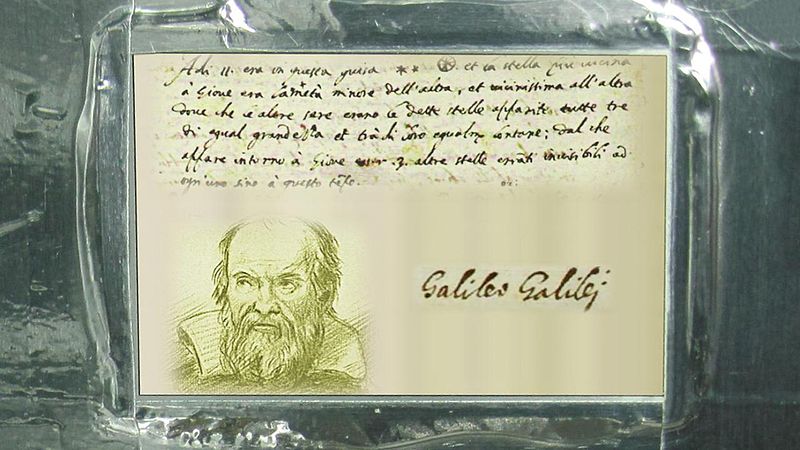 Adi 11. era in questa guisa ** et la stella più vicina
à Giove era la metà minore dell'altra, et vicinissima all'altra
dove che le altre sere erano le dette stelle apparite tutte tre
di egual grandezza et trà di loro egualm.te lontane; dal che
appare intorno à Giove esser .3. altre stelle erranti invisibili ad
ogn'uno sino à questo tẽpo.
Galileo Galilej